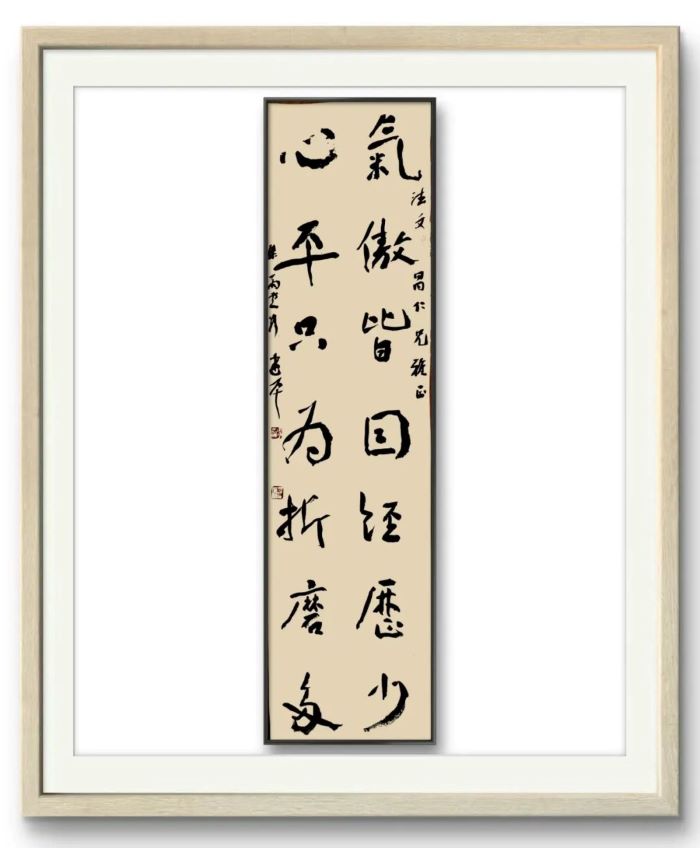 氣傲皆因經歷少
心平只為折磨多
法文
昌仁兄雅正